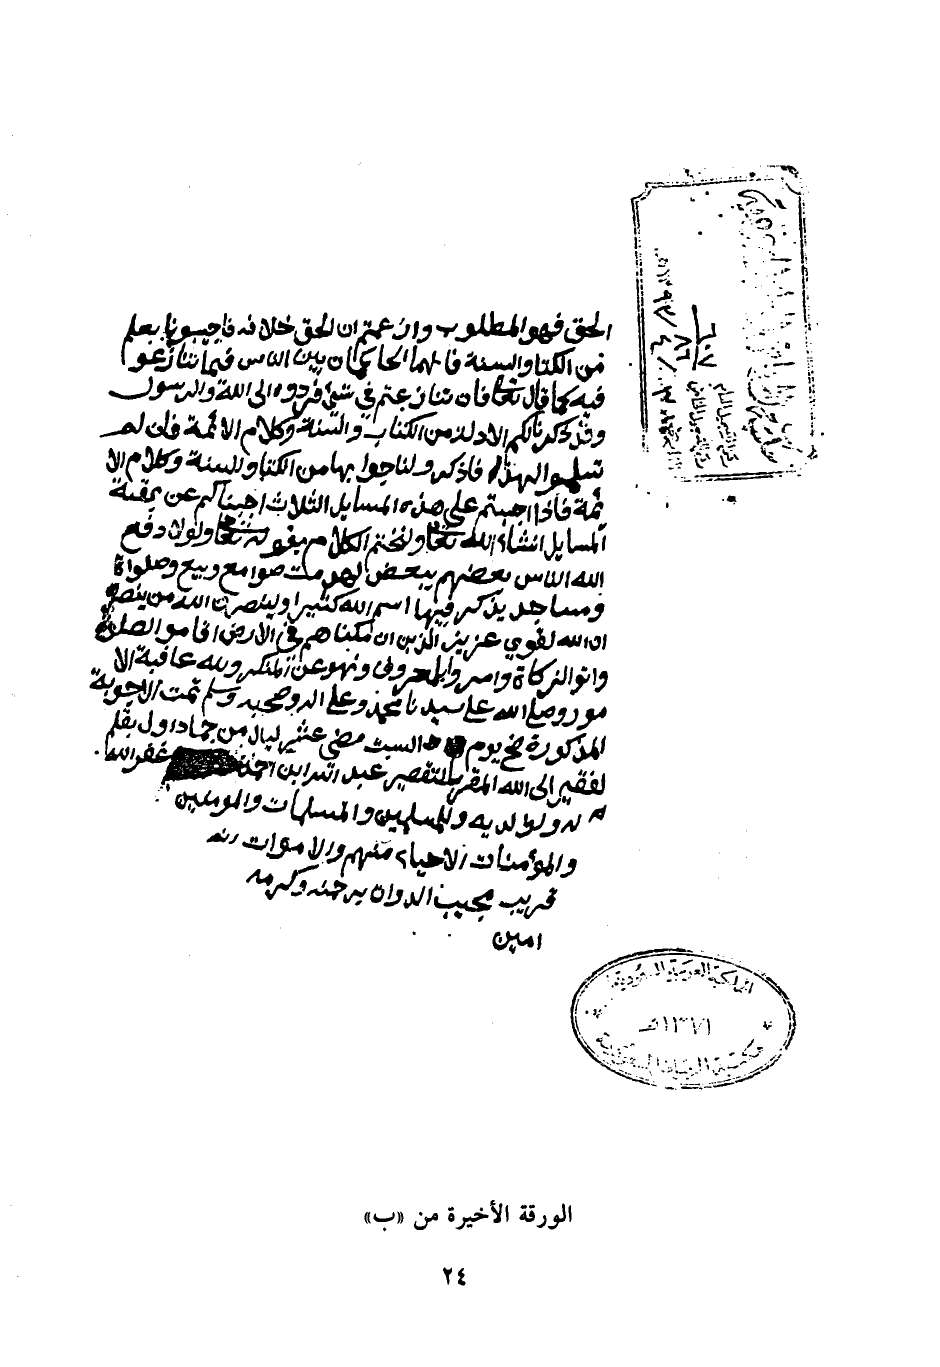 الحق فهو المطلوب وان زعمتم ان الحق خلافه فاجيبونا بعلم
من الكتاب والسنة فانهما الحاكمان بين الناس فيما تنازعوا
فيه كما قال تعالى فان تنازعتم في شئ فردوه الى الله والرسول
وقد ذكرنا لكم الادلة من الكتاب والسنة وكلام الائمة فان لم
تسلموا لهذا فاذكروا لنا جوابها من الكتاب والسنة وكلام الا
ئمة فاذا اجبتم على هذه المسايل الثلاث اجبناكم عن بقية
المسايل انشاء الله تعالى ولنختم الكلام بقوله تعالى ولولا دفع
الله الناس بعضهم ببعض لهدمت صوامع وبيع وصلوات
ومساجد يذكر فيها اسم الله كثيرا ولينصرن الله من ينصره
ان الله لقوي عزيز الذين ان مكناهم في الارض اقاموا الصلاة
واتوا الزكاة وامروا بالمعروف ونهو عن المنكر ولله عاقبة الا
مور وصلى الله على سيدنا محمد وعلى اله وصحبه وسلم تمت الاجوبة
المذكورة في يوم السبت مضى عشر ليال من جماد اول بقلم
لفقير الى الله المقر بالتقصير عبد الله ابن احمد غفر الله
له ولوالديه وللمسلمين والمسلمات والمومنين
والمؤمنات الاحياء منهم والاموات انه
قريب مجيب الدوات برحمته وكرمه
امين
المملكة العربية السعودية
١٣٧١هـ
مكتبة الرياض السعودية
الورقة الأخيرة من «ب»
٢٤